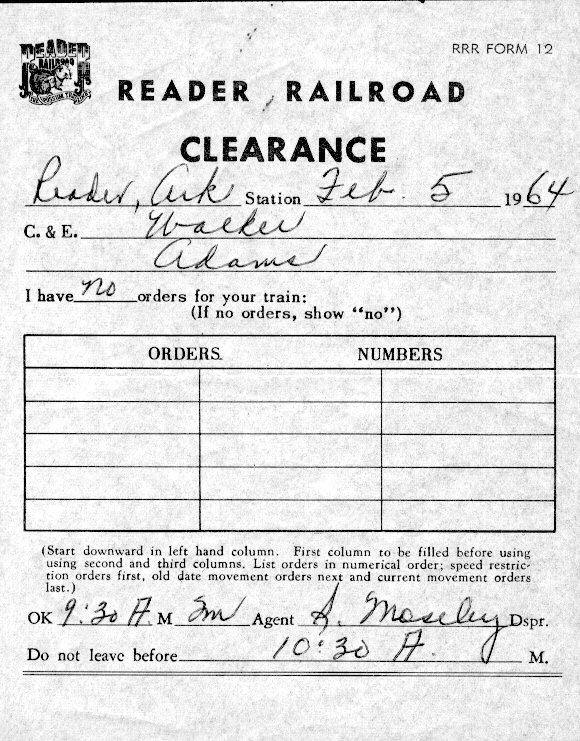 READER
RAILROAD
RRR FORM 12
READER RAILROAD
CLEARANCE
Reader, Ark Station Feb. 5 1964
C. & E. Walker
Adams
I have no orders for your train:
(If no orders, show “no”)
ORDERS NUMBERS
(Start downward in left hand column. First column to be filled before using
using second and third columns. List orders in numerical order; speed restric-
tion orders first, old date movement orders next and current movement orders
last.)
OK 9:30 A. M Agent Moseley Dspr.
Do not leave before 10:30 A. M.